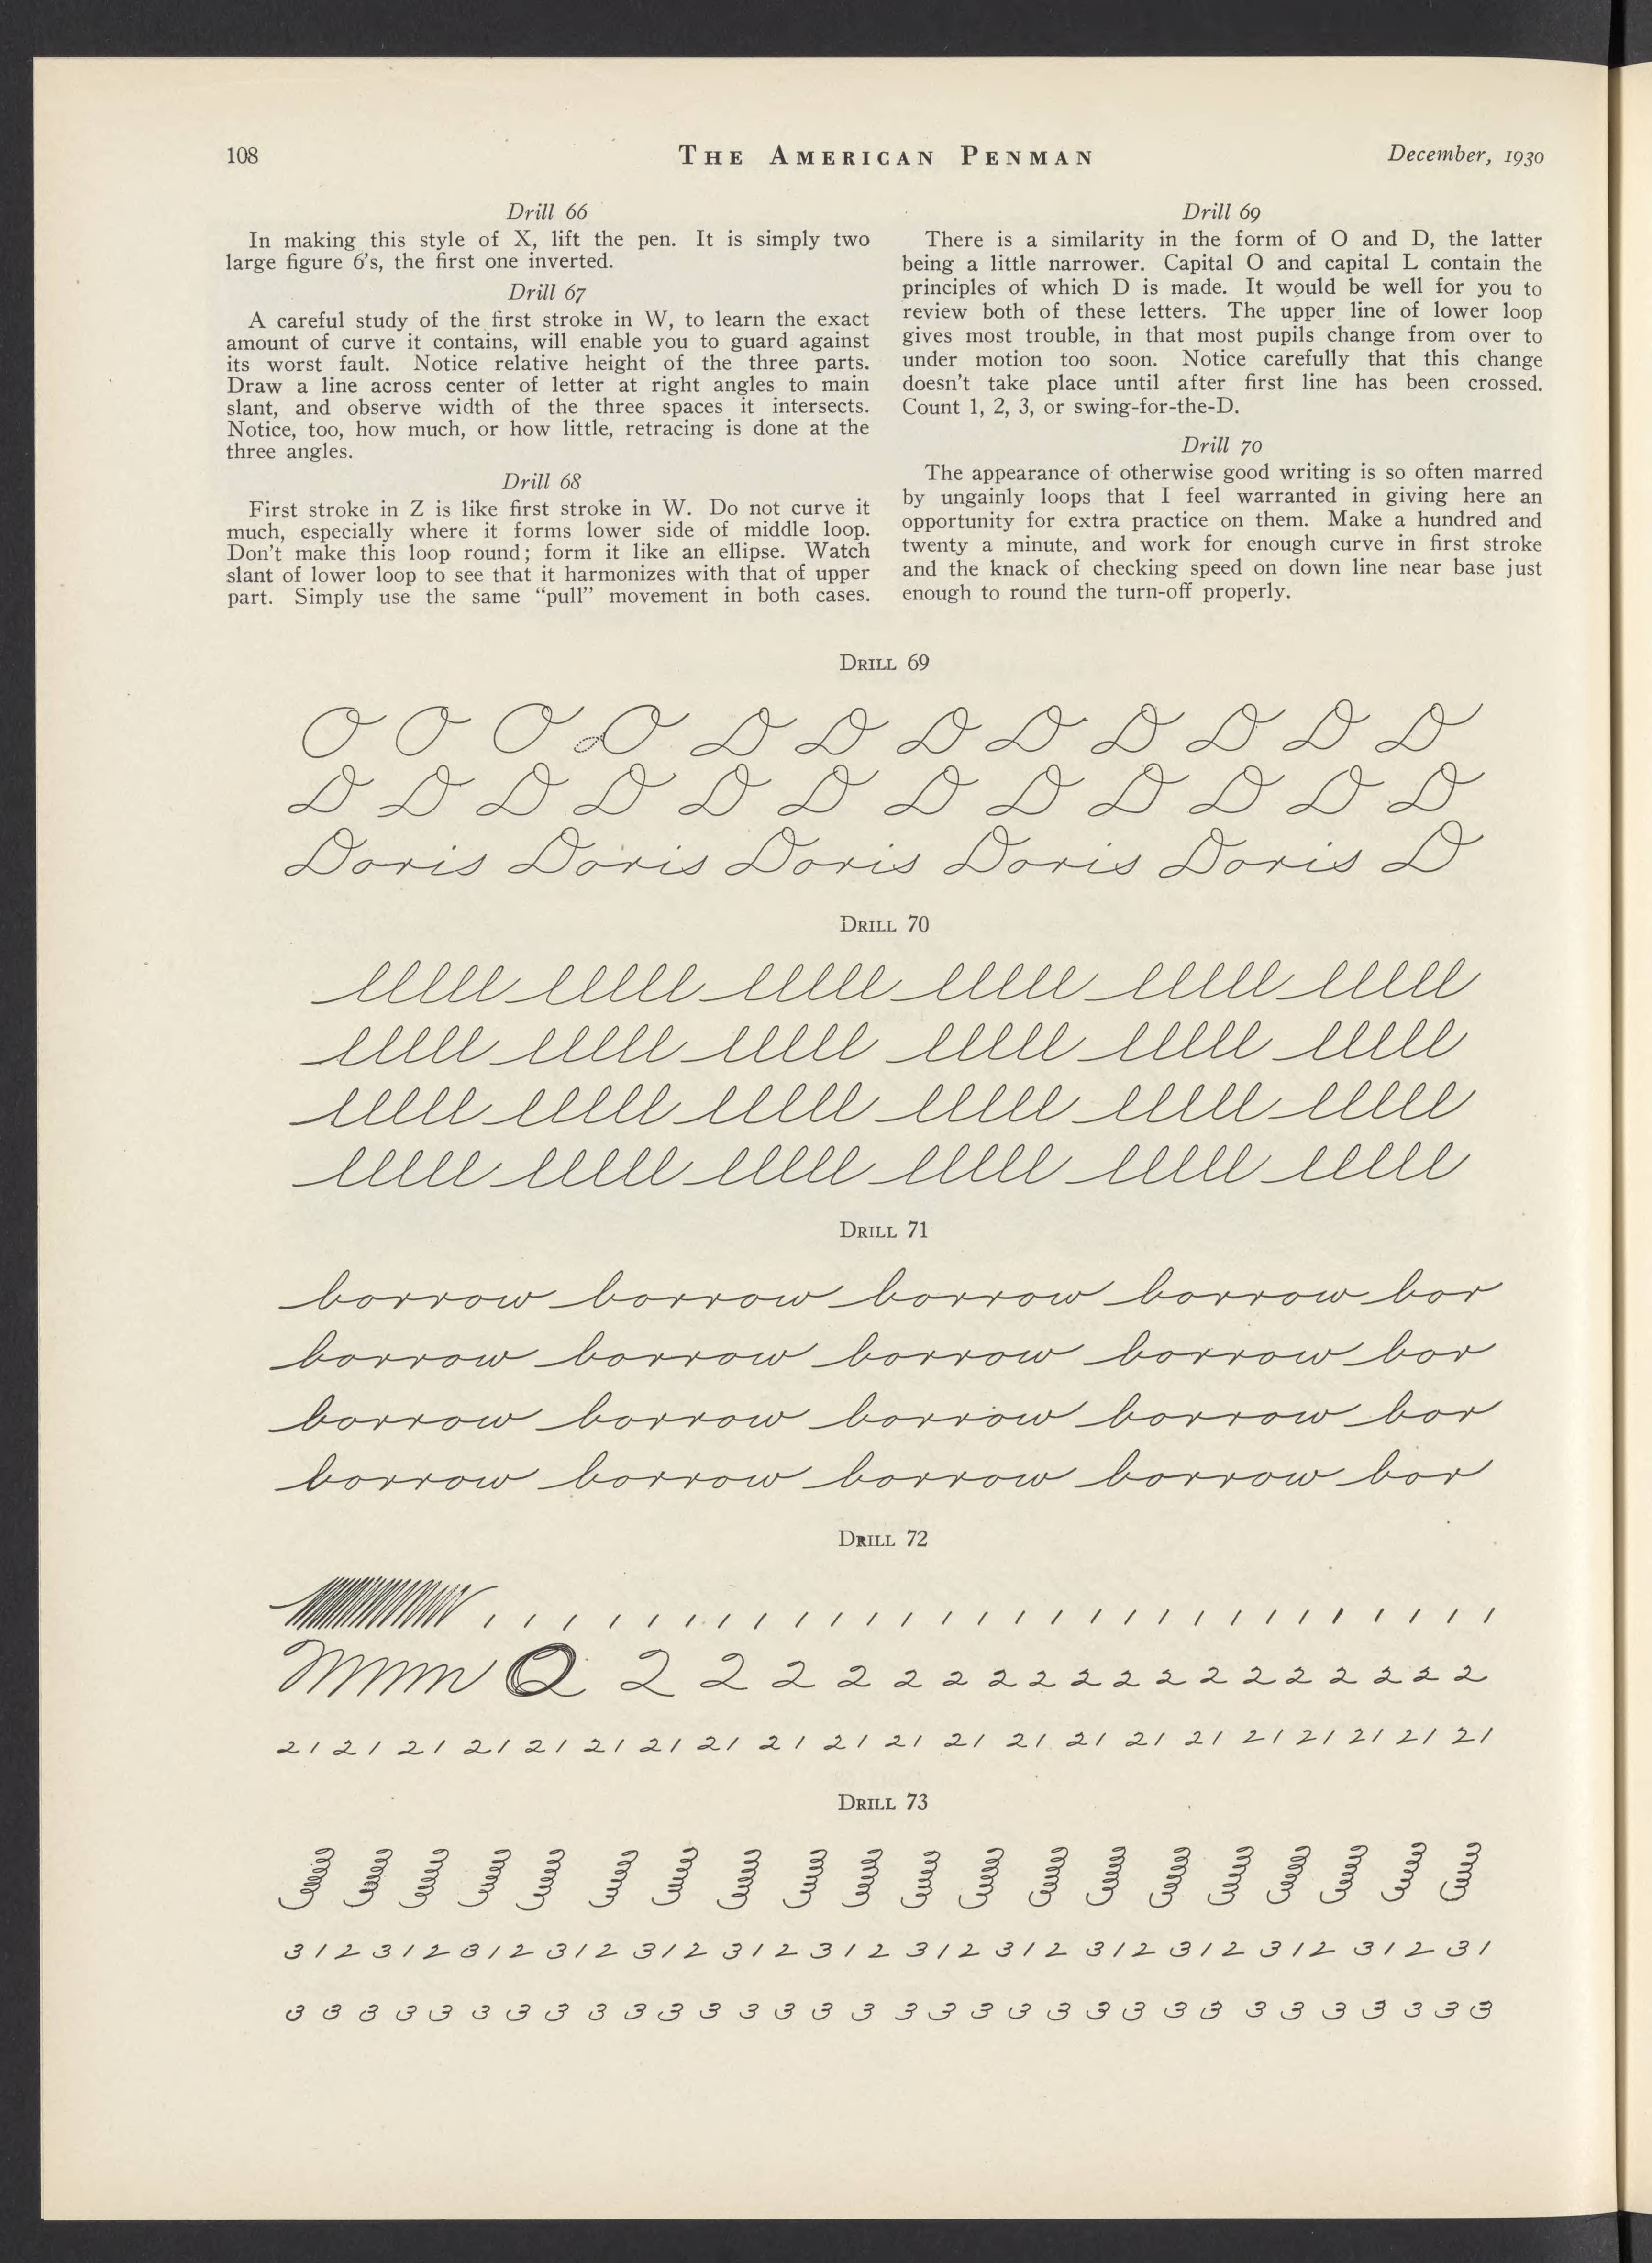 108
THE AMERICAN PENMAN
December, 1930
Drill 66
In making this style of X, lift the pen. It is simply two
large figure 6's, the first one inverted.
Drill 67
A careful study of the first stroke in W, to learn the exact
amount of curve it contains, will enable you to guard against
its worst fault. Notice relative height of the three parts.
Draw a line across center of letter at right angles to main
slant, and observe width of the three spaces it intersects.
Notice, too, how much, or how little, retracing is done at the
three angles.
Drill 68
First stroke in Z is like first stroke in W. Do not curve it
much, especially where it forms lower side of middle loop.
Don't make this loop round; form it like an ellipse. Watch
slant of lower loop to see that it harmonizes with that of upper
part. Simply use the same “pull” movement in both cases.
Drill 69
There is a similarity in the form of O and D, the latter
being a little narrower. Capital O and capital L contain the
principles of which D is made. It would be well for you to
review both of these letters. The upper line of lower loop
gives most trouble, in that most pupils change from over to
under motion too soon. Notice carefully that this change
doesn't take place until after first line has been crossed.
Count 1, 2, 3, or swing-for-the-D.
Drill 70
The appearance of otherwise good writing is so often marred
by ungainly loops that I feel warranted in giving here an
opportunity for extra practice on them. Make a hundred and
twenty a minute, and work for enough curve in first stroke
and the knack of checking speed on down line near base just
enough to round the turn-off properly.
DRILL 69
O O O O D D D D D D D D
D D D D D D D D D D D D
Doris Doris Doris Doris Doris D
DRILL 70
lllll lllll lllll lllll lllll lllll
lllll lllll lllll lllll lllll lllll
lllll lllll lllll lllll lllll lllll
lllll lllll lllll lllll lllll lllll
DRILL 71
borrow borrow borrow borrow bor
borrow borrow borrow borrow bor
borrow borrow borrow borrow bor
borrow borrow borrow borrow bor
DRILL 72
1 1 1 1 1 1 1 1 1 1 1 1 1 1 1 1 1 1 1 1 1 1 1 1 1 1 1 1
2 2 2 2 2 2 2 2 2 2 2 2 2 2 2 2 2 2 2 2
21 21 21 21 21 21 21 21 21 21 21 21 21 21 21 21 21 21 21 21 21
DRILL 73
312 312 312 312 312 312 312 312 312 312 312 312 312 31
3 3 3 3 3 3 3 3 3 3 3 3 3 3 3 3 3 3 3 3 3 3 3 3 3 3 3 3 3 3 3 3